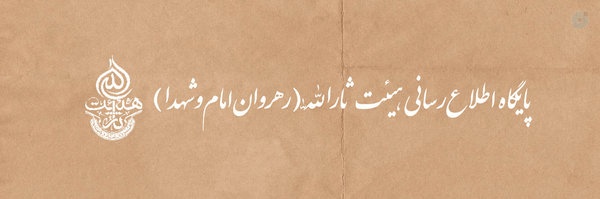 پایگاه اطلاع رسانی هیئت ثارالله (رهروان امام و شهدا)